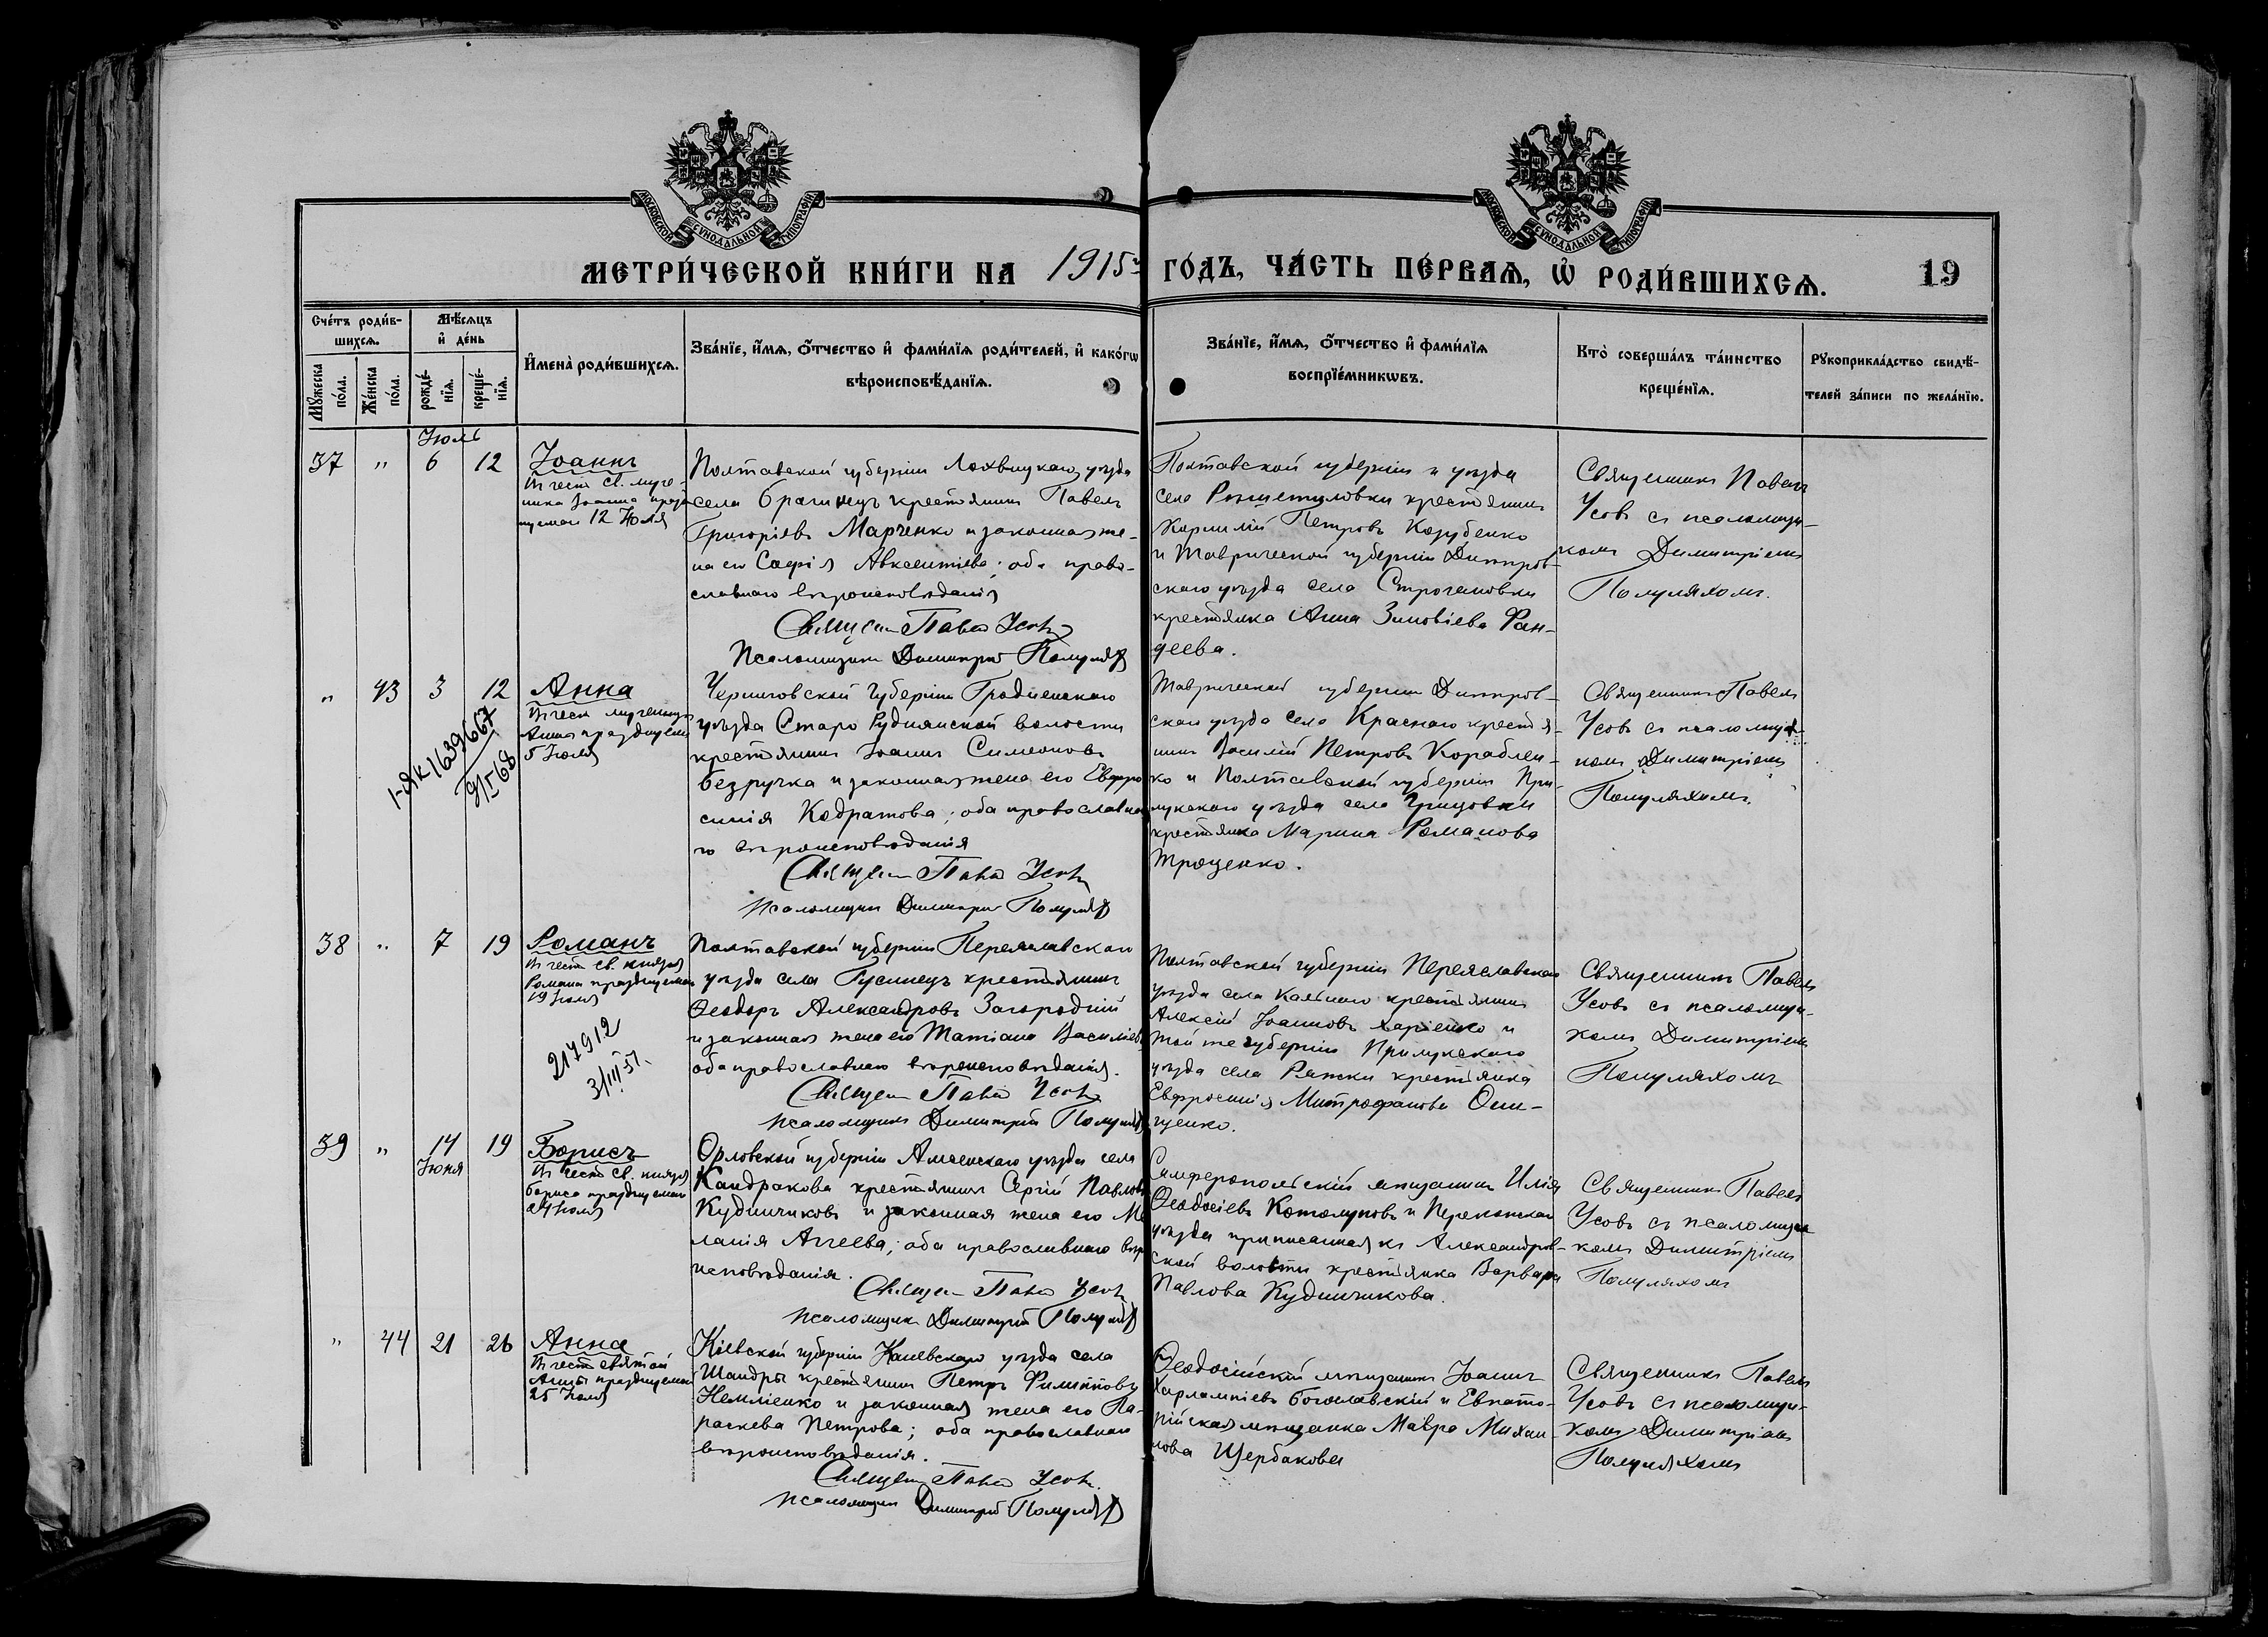 МОСКОВСКОЙ СѴНОДАЛЬНОЙ ТИПОГРАФІИ
МОСКОВСКОЙ СѴНОДАЛЬНОЙ ТИПОГРАФІИ
МЕТРИ́ЧЕСКОЙ КНИ́ГИ НА 1915й ГО́ДЪ, ЧА́СТЬ ПЕ́РВАѦ, Ѡ҆ РОДИ́ВШИХСѦ. 19
Сче́тъ роди́в-
шихсѧ.
Мѹ́жеска по́ла.
Же́нска по́ла.
Мѣ́сѧцъ
и҆ де́нь
рожде́-нїѧ.
креще́-нїѧ.
И҆мена̀ роди́вшихсѧ.
Зва́нїе, и҆́мѧ, ѻ҆́тчество и҆ фами́лїѧ роди́телей, и҆ како́гѡ
вѣроисповѣ́данїѧ.
Зва́нїе, и҆́мѧ, ѻ҆́тчество и҆ фами́лїѧ
воспрїе́мникѡвъ.
Кто̀ соверша́лъ та́инство
креще́нїѧ.
Рѹкоприкла́дство свидѣ́-
телей за́писи по жела́нїю.
Іюль
37 " 6 12
Іоаннъ
Въ честь св. муче-
ника Іоанна празд
нуемаго 12 Іюля
Полтавской губерніи Лохвицкаго уѣзда
села Брагинецъ крестьянинъ Павелъ
Григоріевъ Марченко и законная же-
на его Софія Авксентіева; оба право-
славнаго вѣроисповѣданія
Священ Павел Усовъ
Псаломщикъ Димитрій Полулях
Полтавской губерніи и уѣзда
села Решетиловки крестьянинъ
Корнилій Петровъ
и Таврической губерніи Днѣпров-
скаго уѣзда села Строгановки
крестьянка Анна Зиновіева Фан-
деева.
Священникъ Павелъ
Усовъ съ псаломщи-
комъ Димитріемъ
Полуляхомъ.
" 43 3 12
Анна
Въ честь мученицы
Анны празднуемой
5 Іюля
1-ЯК 1639667
9/I 68
Черниговской губерніи Гродненскаго
уѣзда Старо Руднянской волости
крестьянинъ Іоаннъ Симеоновъ
Безручка и законная жена его Евфро
синія Кодратова; оба православна
го вѣроисповѣданія
Священ Павел Усовъ
Псаломщикъ Димитрій Полулях
Таврической губерніи Днѣпров-
скаго уѣзда села Краснаго крестья-
нинъ Василій Петровъ Кораблен-
ко и Полтавской губерніи При-
лукскаго уѣзда села Грицовки
крестьянка Марина Романова
Троценко.
Священникъ Павелъ
Усовъ съ псаломщи-
комъ Димитріемъ
Полуляхомъ.
38 " 7 19
Романъ
Въ честь св. князя
Романа празднуемаго
19 Іюля
217912
3/III 51.
Полтавской губерніи Переяславскаго
уѣзда села Гусинецъ крестьянинъ
Ѳеодоръ Александровъ Загородній
и законная жена его Татіана Василіева
оба православнаго вѣроисповѣданія.
Священ Павел Усовъ
Псаломщикъ Димитрій Полулях
Полтавской губерніи Переяславскаго
уѣзда села крестьянинъ
Алексій Іоанновъ Харченко и
той же губерніи Прилукскаго
уѣзда села крестьянка
Евфросинія Митрофанова Они-
щенко.
Священникъ Павелъ
Усовъ съ псаломщи-
комъ Димитріемъ
Полуляхомъ
39 " 14 19
Іюня
Борисъ
Въ честь св. князя
Бориса празднуемаго
24 Іюля
Орловской губерніи Мценскаго уѣзда села
Кандракова крестьянинъ Сергій Павловъ
Кудинчиковъ и законная жена его Ме
ланія Аггеева; оба православнаго вѣро
исповѣданія.
Священ Павел Усовъ
Псаломщикъ Димитрій Полулях
Симферопольскій мѣщанинъ Илія
Ѳеодосіевъ Котолуповъ и Перекопскаго
уѣзда приписанная къ Александров-
ской волости крестьянка Варвара
Павлова Кудинчикова.
Священникъ Павелъ
Усовъ съ псаломщи
комъ Димитріемъ
Полуляхомъ
" 44 21 26
Анна
Въ честь святой
Анны празднуемой
25 Іюля
Кіевской губерніи Каневскаго уѣзда села
Шандры крестьянинъ Петръ Филипповъ
Немліенко и законная жена его Па-
раскева Петрова; оба православнаго
вѣроисповѣданія.
Священ Павел Усовъ
Псаломщикъ Димитрій Полулях
Ѳеодосійскій мѣщанинъ Іоаннъ
Харлампіевъ Богославскій и Евпато-
рійская мѣщанка Мавра Михаи-
лова Щербакова
Священникъ Павелъ
Усовъ съ псаломщи-
комъ Димитріемъ
Полуляхомъ